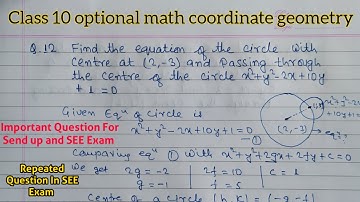 Class 10 optional math coordinate geometry
Q.12 Find the equation of the circle with
Centre at (2,-3) and Passing through
the centre of the circle x²+y²-2x+10y
+1=0
Given Eqⁿ of circle is
x²+y²-2x+10y+1=0 —①
Comparing eqⁿ ① with x²+y²+2gx+2fy+c=0
We get 2g=-2 | 2f=10 | c=1
g=-1 | f=5
Centre of a Circle (h,k) = (-g,-f)
(2,-3)
x²+y²-2x
+10y+1=0
Important Question For
Send up and SEE Exam
Repeated
Question In SEE
Exam